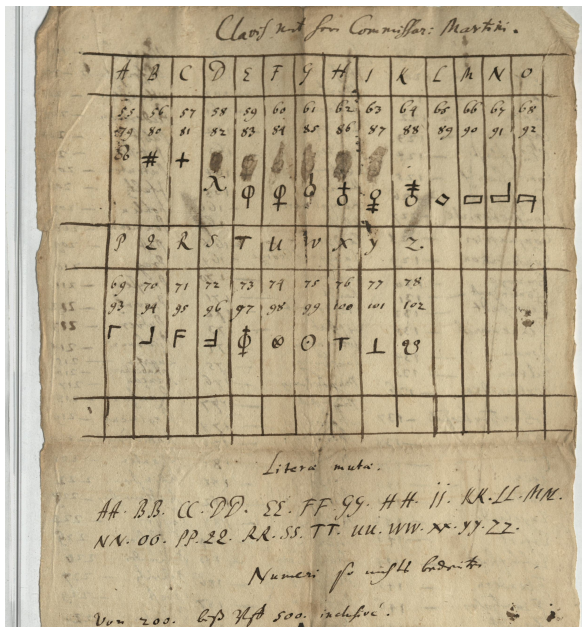 Clavis mit Herrn Commissar: Martini.
A B C D E F G H I K L M N O
55 56 57 58 59 60 61 62 63 64 65 66 67 68
79 80 81 82 83 84 85 86 87 88 89 90 91 92
# +
P Q R S T U W X Y Z.
69 70 71 72 73 74 75 76 77 78
93 94 95 96 97 98 99 100 101 102
Literæ mutæ.
AA. BB. CC. DD. EE. FF. GG. HH. II. KK. LL. MM.
NN. OO. PP. QQ. RR. SS. TT. UU. WW. XX. YY. ZZ.
Numeri so nichts bedeuten
Von 200. biß auff 500. inclusivè.